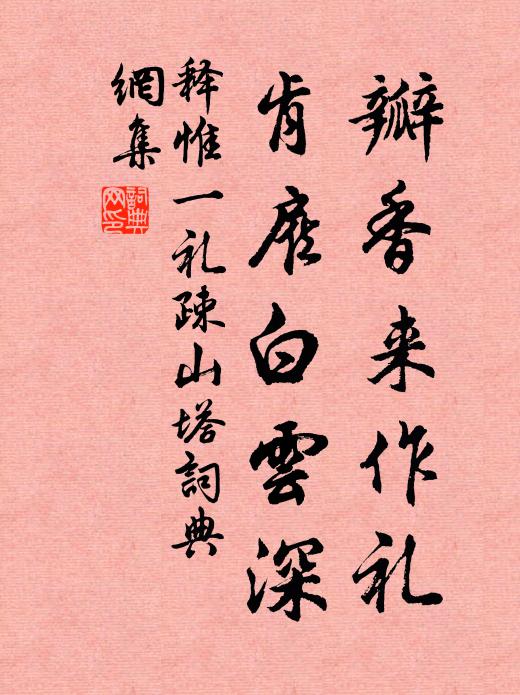 瓣香来作礼
肯白雲深
释惟一礼疎山塔詞典
網集
詞典网印